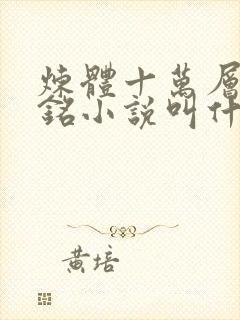 煉體十萬層
銘小說叫什
黃培